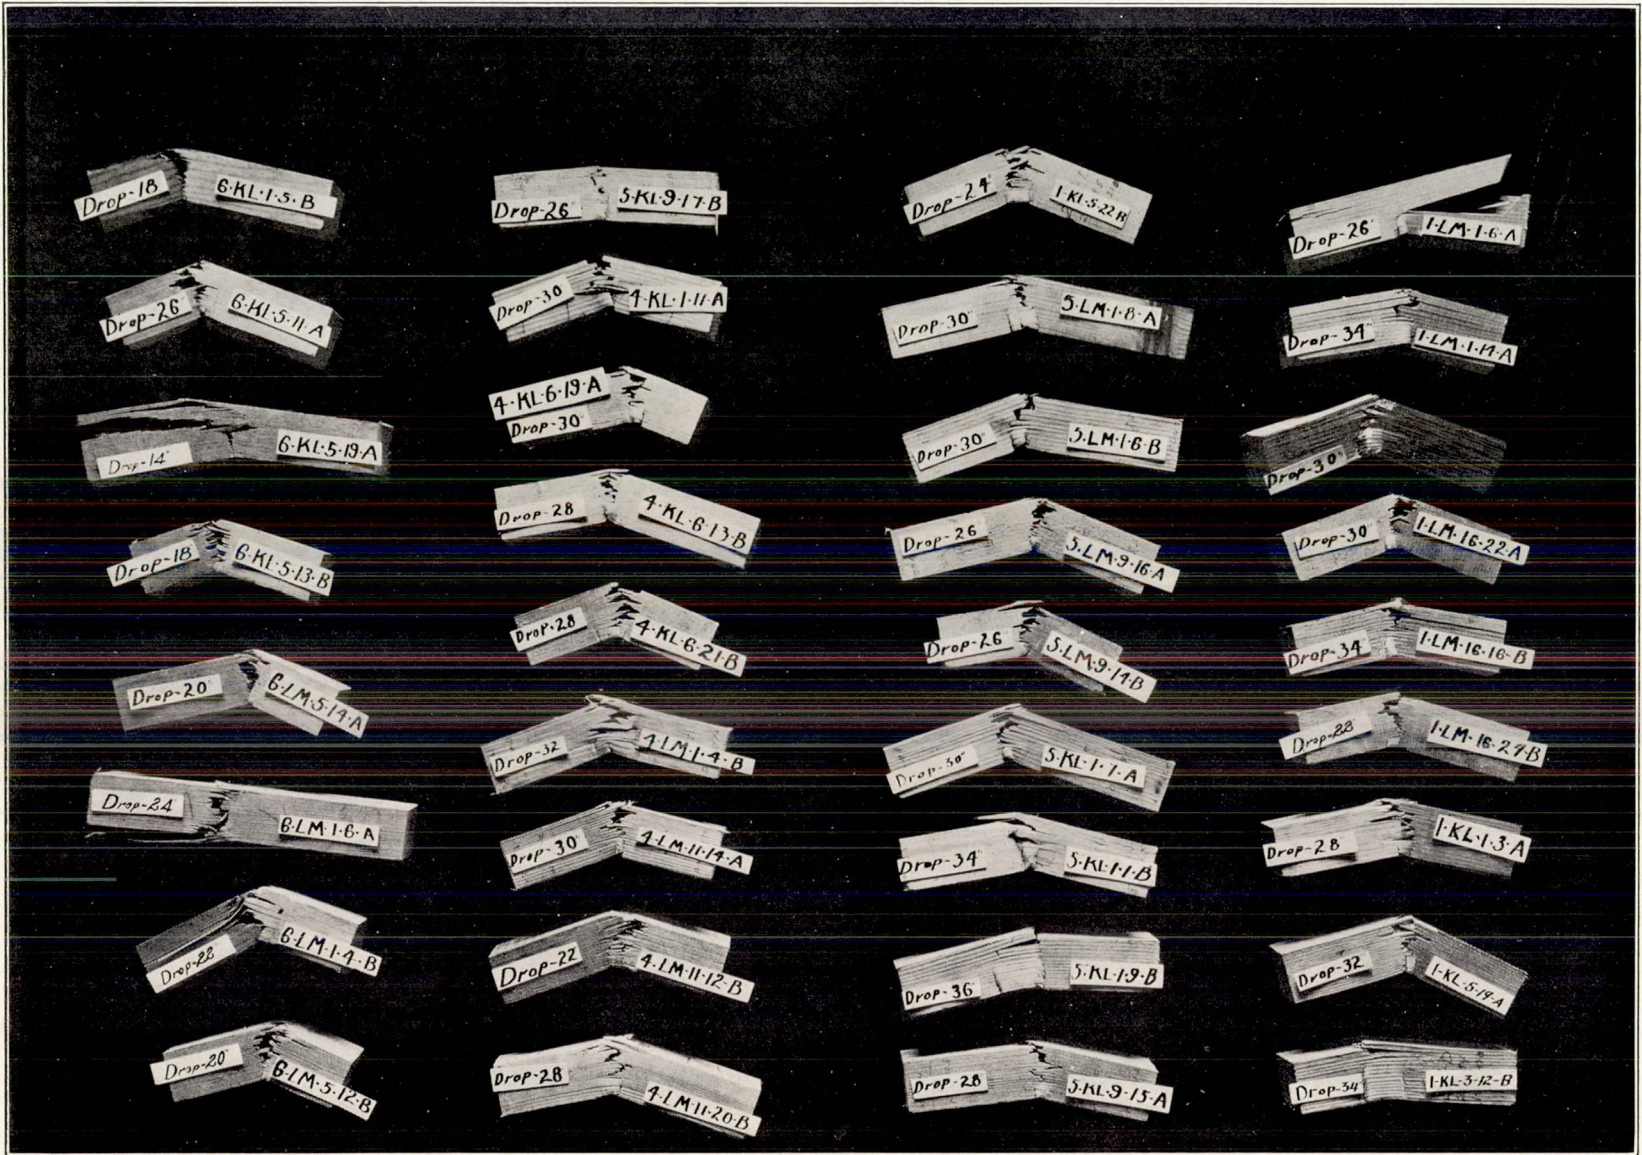 Drop-18
6-KL-1-5-B
Drop-26
6-KL-5-11-A
Drop-14"
6-KL-5-19-A
Drop-18
6-KL-5-13-B
Drop-20"
6-LM-5-14-A
Drop-24
6-LM-1-6-A
Drop-22
6-LM-1-4-B
Drop-20"
6-LM-5-12-B
Drop-26"
5-KL-9-17-B
Drop-30"
4-KL-1-11-A
4-KL-6-19-A
Drop-30"
Drop-28
4-KL-6-13-B
Drop-28
4-KL-6-21-B
Drop-32
4-LM-1-4-B
Drop-30"
4-LM-11-14-A
Drop-22
4-LM-11-12-B
Drop-28
4-LM-11-20-B
Drop-24"
1-KL-5-22-B
Drop-30"
5-LM-1-8-A
Drop-30"
5-LM-1-6-B
Drop-26
5-LM-9-16-A
Drop-26
5-LM-9-14-B
Drop-30"
5-KL-1-7-A
Drop-34"
5-KL-1-1-B
Drop-36"
5-KL-1-9-B
Drop-28
5-KL-9-15-A
Drop-26"
1-LM-1-6-A
Drop-34"
1-LM-1-14-A
Drop-30"
Drop-30
1-LM-16-22-A
Drop-34"
1-LM-16-16-B
1-LM-16-24-B
Drop-28
1-KL-1-3-A
Drop-32
1-KL-5-19-A
Drop-34"
1-KL-3-12-B